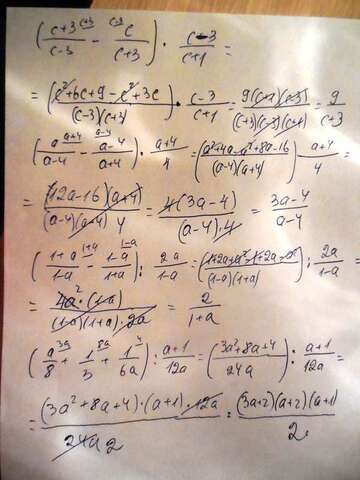 (c+3/c-3 ^{c+3} - c/c+3 ^{c-3}) · c-3/c+1 =
= (c²+6c+9-c²+3c/(c-3)(c+3)) · c-3/c+1 = 9(c+1)(c-3)/(c+3)(c-3)(c+1) = 9/c+3
(a/a-4 ^{a+4} - a-4/a+4 ^{a-4}) · a+4/4 = (a²+4a-a²+8a-16/(a-4)(a+4)) · a+4/4 =
= (12a-16)(a+4)/(a-4)(a+4)4 = 4(3a-4)/(a-4)·4 = 3a-4/a-4
(1+a/1-a ^{1+a} - 1-a/1+a ^{1-a}) : 2a/1-a = (1+2a+a²-1+2a-a²/(1-a)(1+a)) : 2a/1-a =
= 4a²·(1-a)/(1-a)(1+a)·2a = 2/1+a
(a/8 ^{3a} + 1/3 ^{8a} + 1/6a ^{4}) : a+1/12a = (3a²+8a+4/24a) : a+1/12a =
= (3a²+8a+4)·(a+1·12a/24a 2 = (3a+2)(a+2)(a+1)/2.